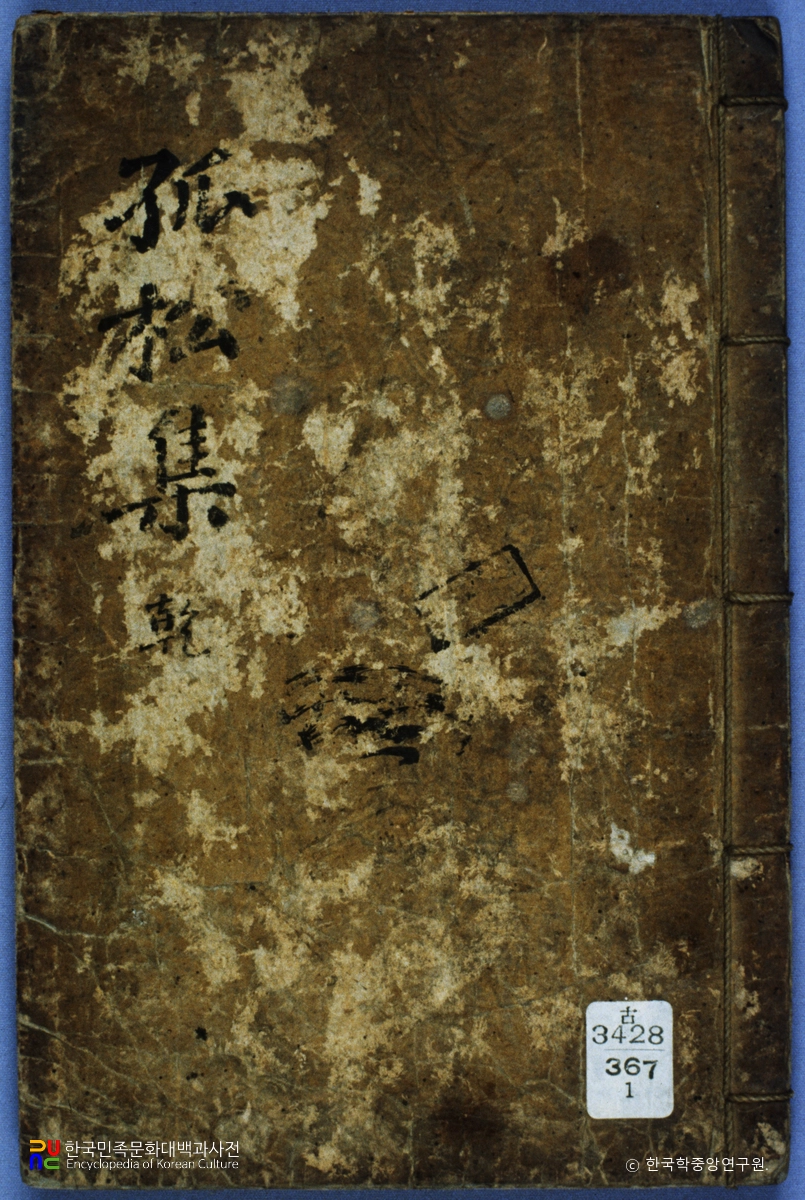 孤松集 乾
古
3428
367
1
한국민족문화대백과사전
Encyclopedia of Korean Culture
ⓒ 한국학중앙연구원